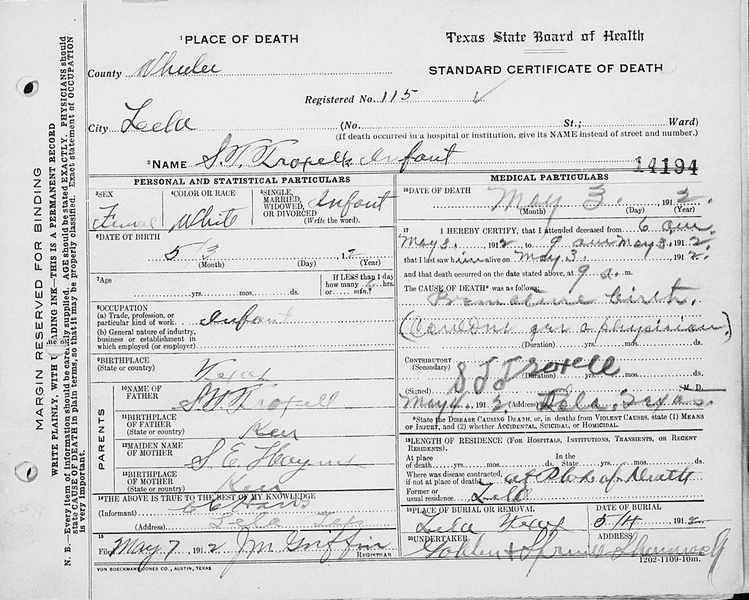 MARGIN RESERVED FOR BINDING
WRITE PLAINLY, WITH UNFADING INK—THIS IS A PERMANENT RECORD
N. B.—Every item of information should be carefully supplied. AGE should be stated EXACTLY. PHYSICIANS should
state CAUSE OF DEATH in plain terms, so that it may be properly classified. Exact statement of OCCUPATION
is very important.
1 PLACE OF DEATH
Texas State Board of Health
County Wheeler
STANDARD CERTIFICATE OF DEATH
Registered No. 115
City Lela (No. St.; Ward)
(If death occurred in a hospital or institution, give its NAME instead of street and number.)
2 NAME S.T. Troxell Infant
14194
PERSONAL AND STATISTICAL PARTICULARS
3 SEX Female
4 COLOR OR RACE White
5 SINGLE, MARRIED, WIDOWED, OR DIVORCED (Write the word). Infant
6 DATE OF BIRTH
5 3 1
(Month) (Day) (Year)
7 AGE
IF LESS than 1 day
how many hrs.
yrs. mos. ds. or min.?
8 OCCUPATION
(a) Trade, profession, or
particular kind of work Infant
(b) General nature of industry,
business or establishment in
which employed (or employer)
9 BIRTHPLACE
(State or country) Texas
PARENTS
10 NAME OF
FATHER Troxell
11 BIRTHPLACE
OF FATHER
(State or country) Ken
12 MAIDEN NAME
OF MOTHER S. E.
13 BIRTHPLACE
OF MOTHER
(State or country) Ken
14 THE ABOVE IS TRUE TO THE BEST OF MY KNOWLEDGE
(Informant)
(Address) Lela
15
Filed May 7 1912 J M Griffin
REGISTRAR
VON BOECKMANN-JONES CO., AUSTIN, TEXAS
MEDICAL PARTICULARS
16 DATE OF DEATH May 3. 1912.
(Month) (Day) (Year)
17 I HEREBY CERTIFY, that I attended deceased from 6 am
May 3. 1912 to 9 am May 3. 1912.
that I last saw him alive on May 3. 1912.
and that death occurred on the date stated above, at 9 a. m.
The CAUSE OF DEATH* was as follows:
Premature birth.
(Could not a physician)
(Duration) yrs. mos. ds.
CONTRIBUTORY
(Secondary)
(Duration) yrs. mos. ds.
(Signed) Troxell M. D.
May 4. 1912 (Address) Lela, Texas.
*State the DISEASE CAUSING DEATH, or, in deaths from VIOLENT CAUSES, state (1) MEANS
OF INJURY, and (2) whether ACCIDENTAL, SUICIDAL, or HOMICIDAL.
18 LENGTH OF RESIDENCE (FOR HOSPITALS, INSTITUTIONS, TRANSIENTS, OR RECENT
RESIDENTS).
At place In the
of death yrs. mos. ds. State yrs. mos. ds.
Where was disease contracted,
if not at place of death? at Place of Death
Former or
usual residence Lela
19 PLACE OF BURIAL OR REMOVAL
DATE OF BURIAL
Lela Texas 5/4 1912
20 UNDERTAKER
ADDRESS
Shamrock
1202-1109-10m.